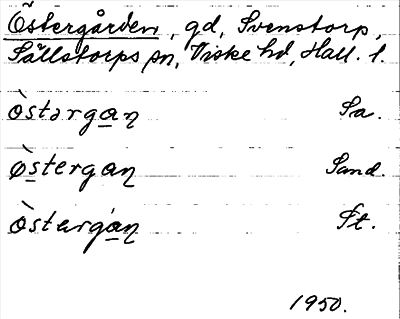 Östergården, gd, Svenstorp,
Sällstorps sn, Viske hd, Hall. l.
òstərga̲ŋ Sa.
ø̀stergaŋ Sand.
òstərga̲ŋ St.
1950.